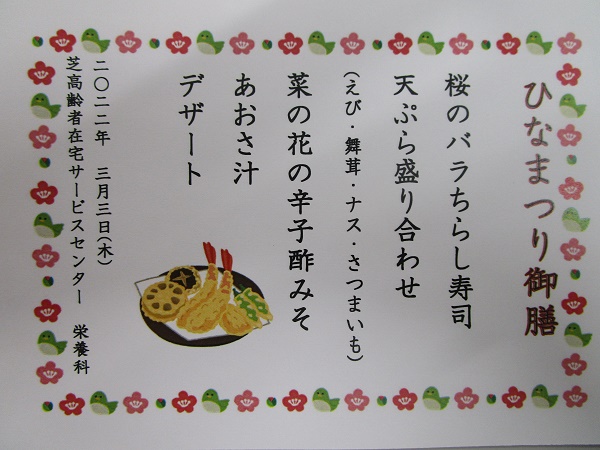 ひなまつり御膳
桜のバラちらし寿司
天ぷら盛り合わせ
(えび・舞茸・ナス・さつまいも)
菜の花の辛子酢みそ
あおさ汁
デザート
二〇二二年 三月三日(木)
芝高齢者在宅サービスセンター 栄養科